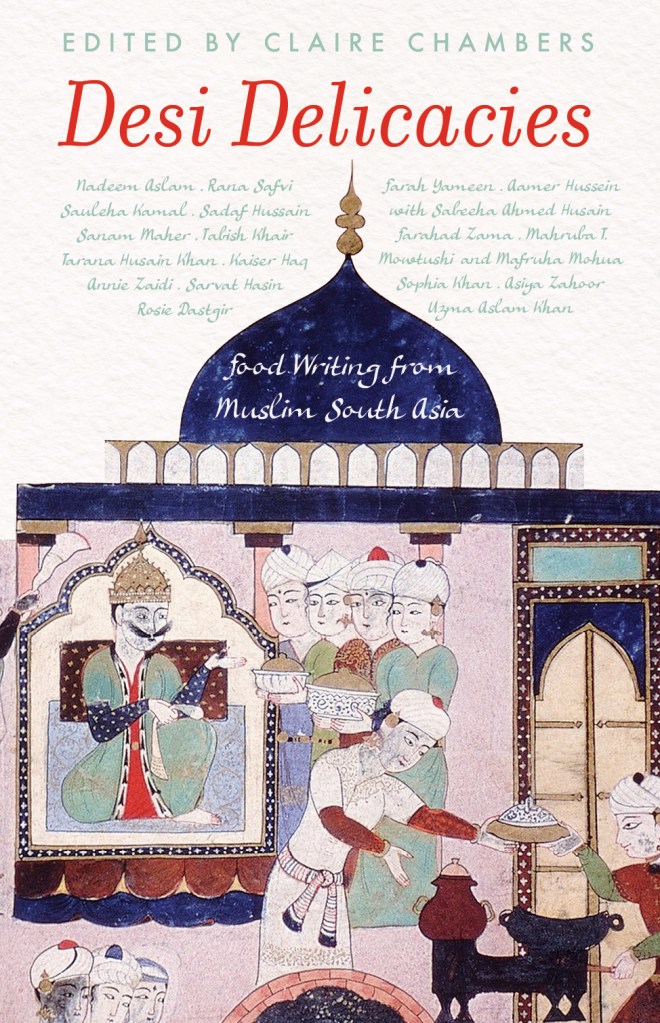 EDITED BY CLAIRE CHAMBERS
Desi Delicacies
Nadeem Aslam . Rana Safvi
Sauleha Kamal . Sadaf Hussain
Sanam Maher . Tabish Khair
Tarana Husain Khan . Kaiser Haq
Annie Zaidi . Sarvat Hasin
Rosie Dastgir
Farah Yameen . Aamer Hussein
with Sabeeha Ahmed Husain
Farahad Zama . Mahruba T.
Mowtushi and Mafruha Mohua
Sophia Khan . Asiya Zahoor
Uzma Aslam Khan
Food Writing from
Muslim South Asia